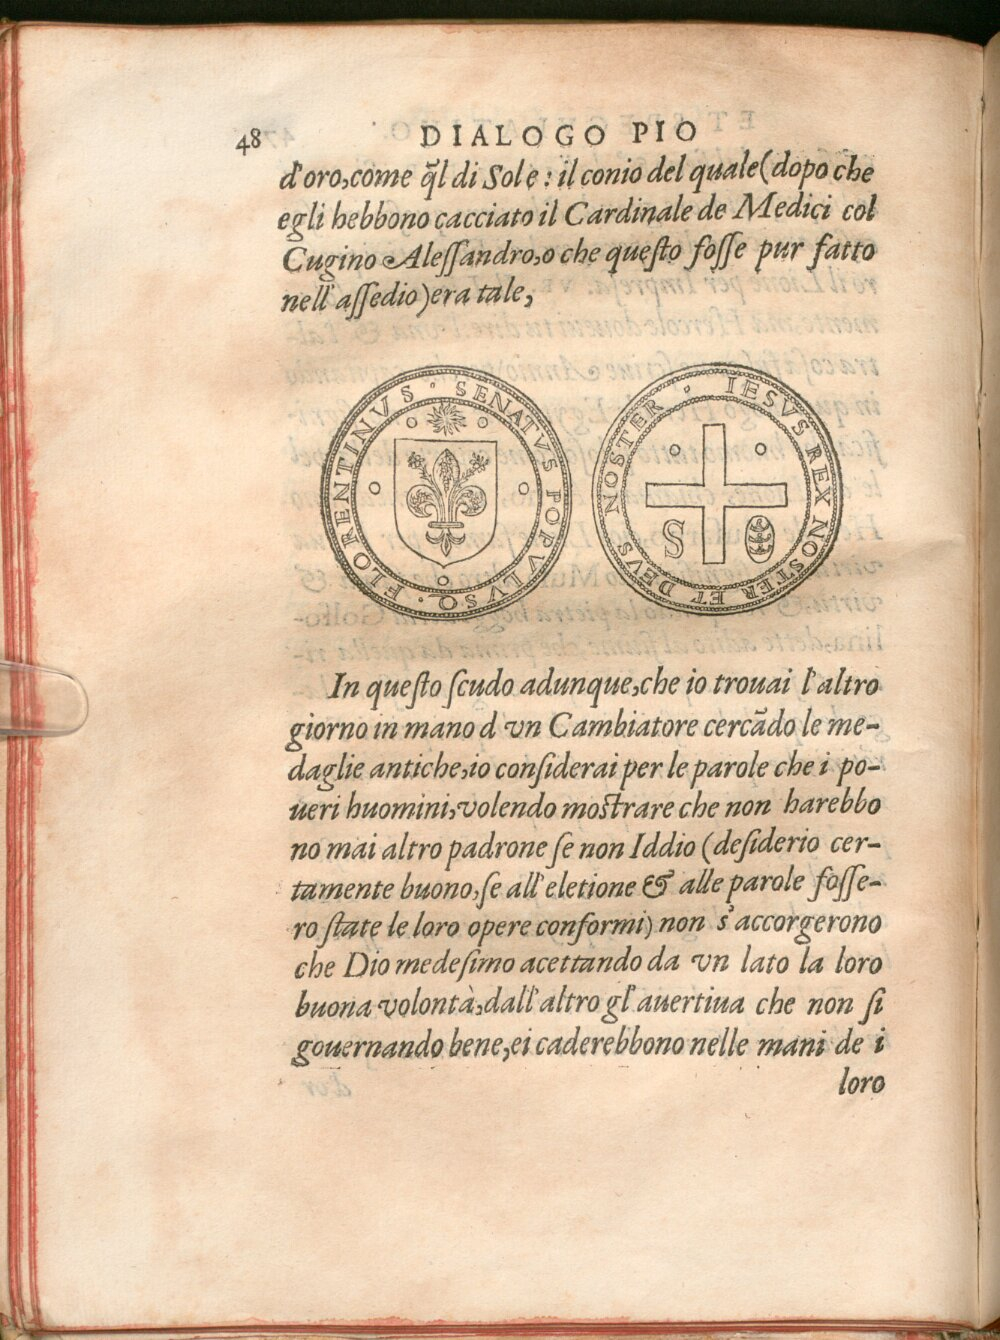 48 DIALOGO PIO
d'oro, come q̃l di Sole: il conio del quale (dopo che
egli hebbono cacciato il Cardinale de Medici col
Cugino Alessandro, o che questo fosse pur fatto
nell'assedio) era tale,
SENATVS POPVLVSQ · FLORENTINVS ·
IESVS REX NOSTER ET DEVS NOSTER ·
S
In questo scudo adunque, che io trouai l'altro
giorno in mano d vn Cambiatore cercãdo le me-
daglie antiche, io considerai per le parole che i po-
ueri huomini, volendo mostrare che non harebbo
no mai altro padrone se non Iddio (desiderio cer-
tamente buono, se all'eletione & alle parole fosse-
ro state le loro opere conformi) non s'accorgerono
che Dio medesimo acettando da vn lato la loro
buona volontà, dall'altro gl'auertiua che non si
gouernando bene, ei caderebbono nelle mani de i
loro